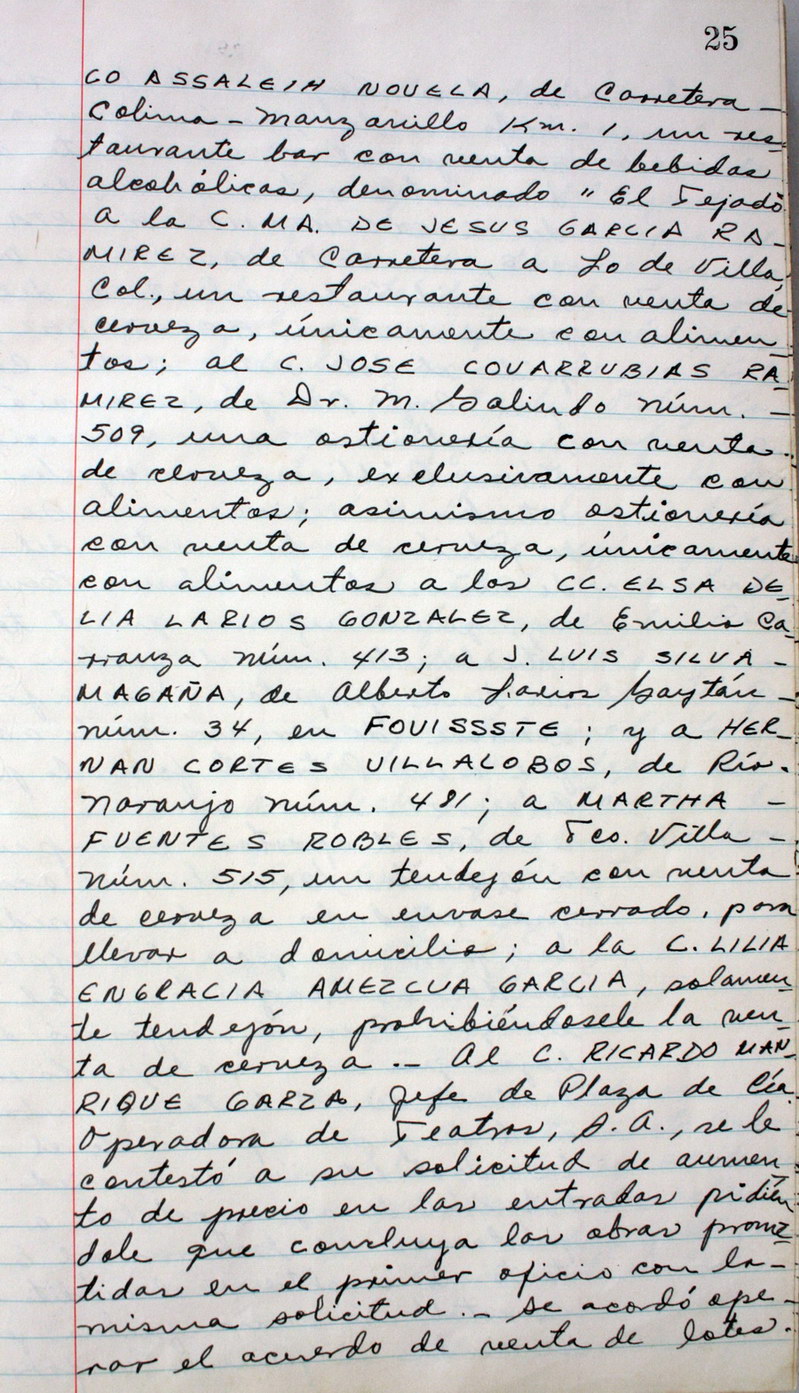 25
CO ASSALEIH NOVELA, de Carretera -
Colima - Manzanillo Km. 1, un res-
taurante bar con venta de bebidas
alcohólicas, denominado "El Tejado
a la C. MA. DE JESUS GARCIA RA-
MIREZ, de Carretera a Lo de Villa
Col., un restaurante con venta de
cerveza, únicamente con alimen-
tos; al C. JOSE COVARRUBIAS RA-
MIREZ, de Dr. M. Galindo núm. -
509, una ostionería con venta.
de cerveza, exclusivamente con
alimentos; asimismo ostionería
con venta de cerveza, únicamente
con alimentos a los CC. ELSA DE-
LIA LARIOS GONZALEZ, de Emilio Ca-
rranza núm. 413; a J. LUIS SILVA -
MAGAÑA, de Alberto Larios Gaytán -
núm. 34, en FOVISSSTE; y a HER-
NAN CORTES VILLALOBOS, de Río.
Naranjo núm. 481; a MARTHA -
FUENTES ROBLES, de Fco. Villa -
núm. 515, un tendejón con venta
de cerveza en envase cerrado, para
llevar a domicilio; a la C. LILIA
ENGRACIA AMEZCUA GARCIA, solamen-
te tendejón, prohibiéndosele la ven-
ta de cerveza .- Al C. RICARDO MAN-
RIQUE GARZA, Jefe de Plaza de Cía.
Operadora de Teatros, S.A., se le
contestó a su solicitud de aumen-
to de precio en las entradas pidién-
dole que concluya las obras prome-
tidas en el primer oficio con la -
misma solicitud .- Se acordó ope-
rar el acuerdo de venta de lotes.